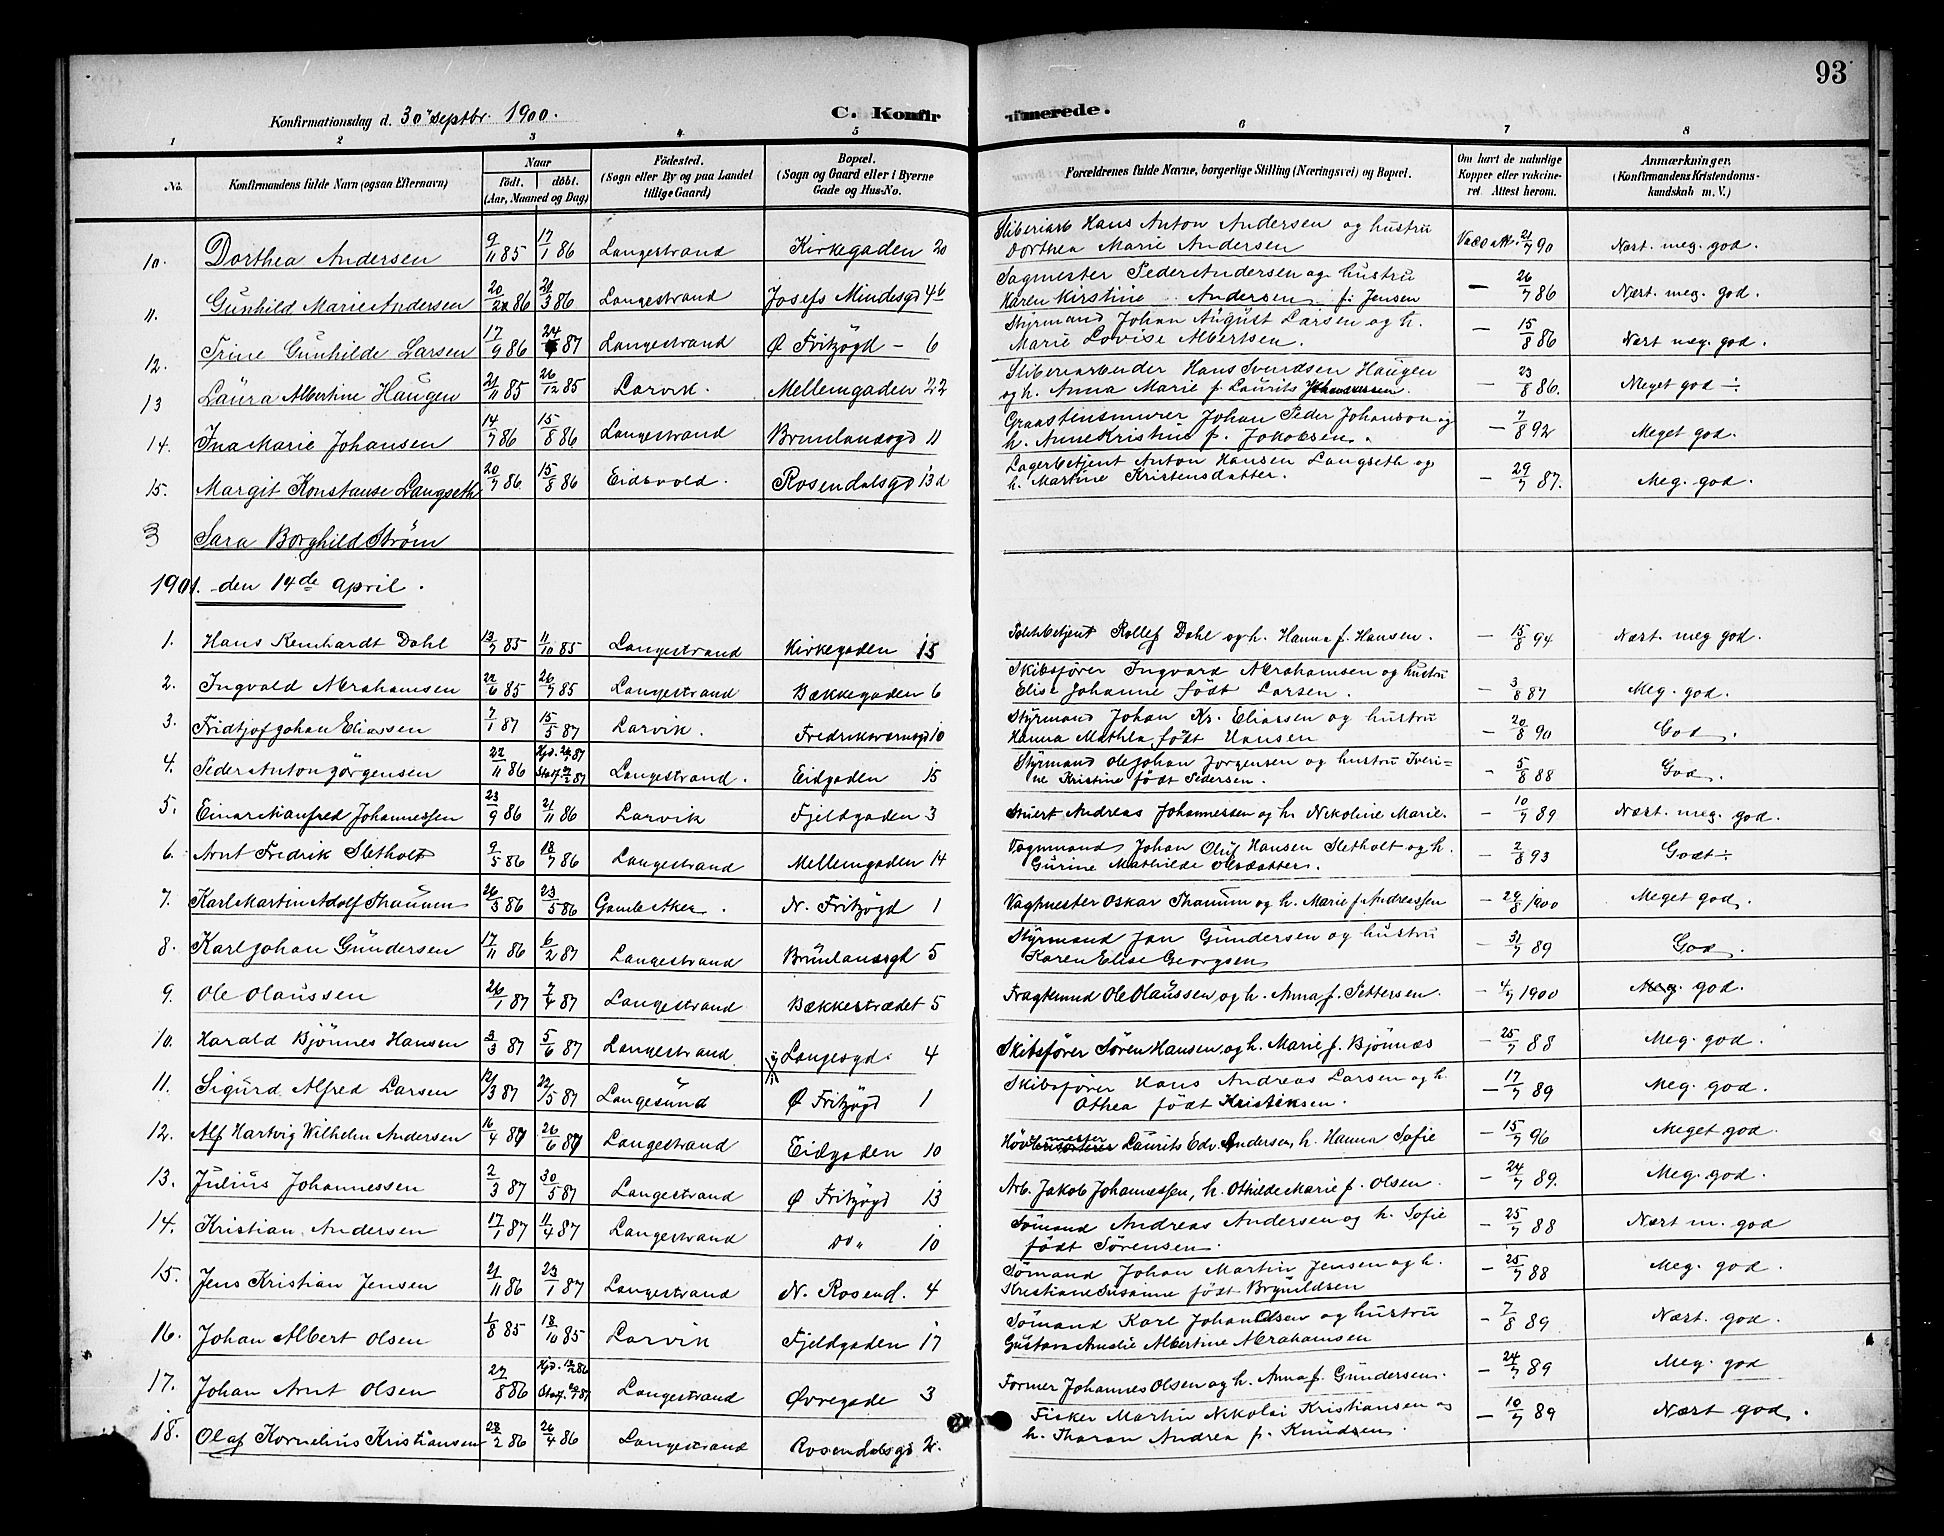 93
Konfirmationsdag d. 30 septbr. 1900.
C. Konfirmerede.
1 2 3 4 5 6 7 8
No.
Konfirmandens fulde Navn (ogsaa Efternavn)
Naar
født. døbt.
(Aar, Maaned og Dag)
Fødested.
(Sogn eller By og paa Landet
tillige Gaard)
Bopæl.
(Sogn og Gaard eller i Byerne
Gade og Hus-No.
Forældrenes fulde Navne, borgerlige Stilling (Næringsvei) og Bopæl.
Om havt de naturlige
Kopper eller vakcine-
ret. Attest herom.
Anmærkninger.
(Konfirmandens Kristendoms-
kundskab m. V.)
10. Dorthea Andersen 9/11 85 17/1 86 Langestrand Kirkegaden 20 Sliberiarb Hans Anton Andersen og hustru Dorthea Marie Andersen 21/7 90 Nært. meg. god.
11. Gunhild Marie Andersen 86 3 86 Langestrand Josefs Mindesgd 46 Sagmester Peder Andersen og hustru Karen Kirstine Andersen f. Jensen - 26/7 86 Nært. meg. god.
12. Trine Gunhilde Larsen 17/9 86 24 87 Langestrand Ø Fritzøgd - 6 Styrmand Johan August Larsen og h. Marie Lovise Albertsen. - 15/8 86 Nært meg. god.
13 Laura Albertine Haugen 21/11 85 26/12 85 Larvik. Mellemgaden 22 Sliberiarbeider Hans Svendsen Haugen og h. Anna Marie f. Laurits - 23/8 86. Meget god ÷
14. Ina Marie Johansen 14/7 86 15/8 86 Langestrand Brunlandsgd 11 Graastensmurer Johan Peder Johanson og h. Anne Kristine f. Jakobsen. - 7/8 92 Meget god.
15. Margit Konstanse Langseth 20/7 86. 15/8 86 Eidsvold. Rosendalsgd 13d Lagerbetjent Anton Hansen Langseth og h. Martine Kristensdatter. - 29/7 87. Meg. god.
3 Sara Borghild Strøm
1901. den 14de april.
1. Hans Renhardt Dahl 13/7 85 11/10 85 Langestrand Kirkegaden 15 Toldbetjent Rollef Dahl og h. Hanna f. Hansen. - 15/8 94 Nært. meg god.
2. Ingvald Abrahamsen 22/6 85 26/7 85 Langestrand Bækkegaden 6 Skibsfører Ingvard Abrahamsen og hustru Elise Johanne født Larsen. - 3/8 87 Meg. god.
3. Fridtjof Johan Eliassen 7/1 87 15/5 87 Larvik. Fredriksværnsgd 10 Styrmand Johan Kr. Eliassen og hustru Hanna Mathea født Hansen - 20/8 90 God.
4. Peder Anton Jørgensen 22/11 86 Hjd. 87 Stadf. 87 Langestrand. Eidgaden 15 Styrmand Ole Johan Jørgensen og hustru Iverine Kristine født Pedersen. - 5/8 88 God.
5. Einar Manfred Johannessen 23/9 86 21/11 86 Larvik Fjeldgaden 3 Stuert Andreas Johannessen og h. Nikoline Marie. - 10/7 89 Nært. meg. god.
6. Arnt Fredrik Sletholt 9/5 86 18/7 86 Langestrand Mellemgaden 14 Vognmand Johan Oluf Hansen Sletholt og h. Gurine Mathilde Olsdatter. - 2/8 93 Godt ÷
7. Karl Martin Adolf Thanum 26/3 86 23/5 86 Gamle Aker. N. Fritzøgd 1 Vagtmester Oskar Thanum og h. Marie f. Andreassen - 1900 Meget god.
8. Karl Johan Gundersen 17/11 86 6/2 87 Langestrand Brunlandsgd 5 Styrmand Jan Gundersen og hustru Karen Elise Georgsen - 31/7 89 God.
9. Ole Olaussen 26/1 87 7/4 87 Langestrand Bækkestrædet 5 Fragtmand Ole Olaussen og h. Anna f. Pettersen. - 4/7 1900 Meg. god.
10. Harald Bjønnes Hansen 3/3 87 5/6 87 Langestrand Langesgd. 4 Skibsfører Søren Hansen og h. Marie f. Bjønnæs - 25/7 88 Meg. god.
11. Sigurd Alfred Larsen 12/3 87 22/5 87 Langesund Ø Fritzøgd 1 Skibsfører Hans Andreas Larsen og h. Othea født Kristensen. - 17/7 89 Meg. god.
12. Alf Hartvig Wilhelm Andersen 16/4 87 26/6 87 Langestrand Eidgaden 10 mester Laurits Edv. Andersen, h. Hanna Sofie - 15/7 96 Meget god.
13. Julius Johannessen 2/3 87 30/5 87 Langestrand Ø Fritzøgd 13 Arb. Jakob Johannessen, h. Othilde Marie f. Olsen. - 24/7 89. Meg. god.
14. Kristian Andersen 17/1 87 11/4 87 Langestrand Do „ 10 Sømand Andreas Andersen og h. Sofie født Sørensen. - 25/7 88 Nært m. god
15. Jens Kristian Jensen 21/11 86 23/1 87 Langestrand N. Rosend. 4 Sømand Johan Martin Jensen og h. Kristiane Susanne født Brynildsen - 25/7 88 Meg. god.
16. Johan Albert Olsen 1/8 85 18/10 85 Larvik Fjeldgaden 17 Sømand Karl Johan Olsen og hustru Gustava Amalie Albertine Abrahamsen - 7/8 89 Nært. god.
17. Johan Arnt Olsen 27/8 86 Hjd. 86 Stadf. 87 Langestrand Øvregade 3 Former Johannes Olsen og h. Anna f. Gundersen. - 24/7 89 Meg. god
18. Olaf Kornelius Kristiansen 28/2 86 26/4 86 Langestrand Rosendalsgd 2. Fisker Martin Nikolai Kristiansen og h. Tharan Andrea f. Knudsen. - 10/7 89 Nært god.